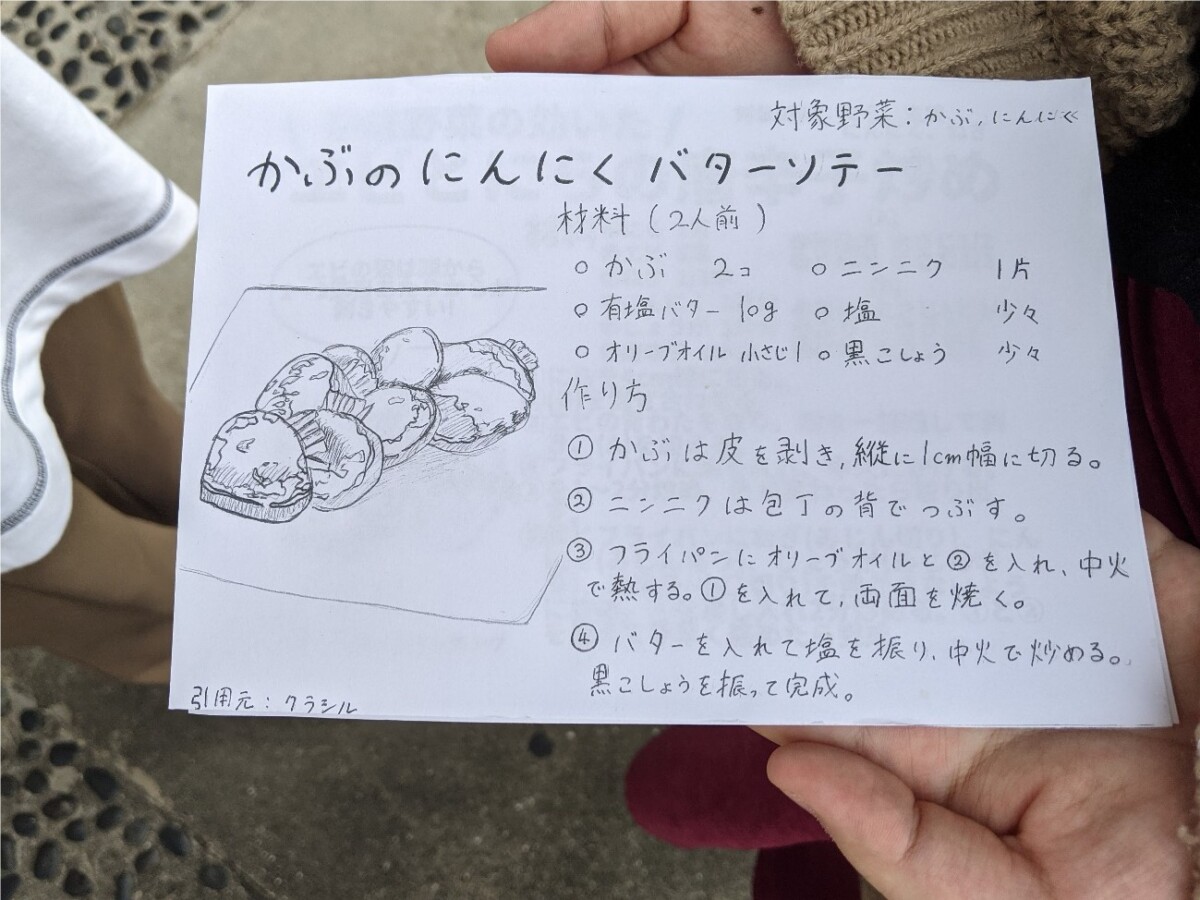 対象野菜：かぶ, にんにく
かぶのにんにくバターソテー
材料（2人前）
○ かぶ 2コ ○ ニンニク 1片
○ 有塩バター 10g ○ 塩 少々
○ オリーブオイル 小さじ1 ○ 黒こしょう 少々
作り方
① かぶは皮を剥き, 縦に1cm幅に切る。
② ニンニクは包丁の背でつぶす。
③ フライパンにオリーブオイルと②を入れ、中火
で熱する。①を入れて, 両面を焼く。
④ バターを入れて塩を振り、中火で炒める。
黒こしょうを振って完成。
引用元：クラシル